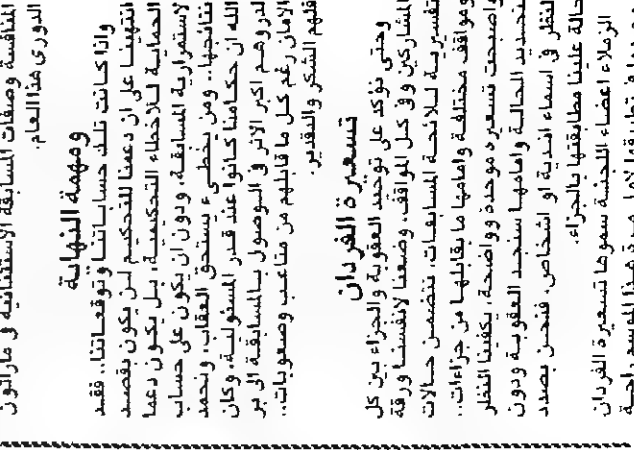 المنافسة وصفات المسابقة الاستثنائية في ماراثون
الدوري هذا العام.
ومهمة النهاية
واذا كانت تلك حساباتنا وتوقعاتنا.. فقد
انتهينا على ان دعمنا للتحكيم لن يكون بقصد
الحماية للاخطاء التحكيمية، بل يكون دعما
لاستمرارية المسابقة، ودون ان يكون على حساب
نتائجها.. ومن يخطىء يستحق العقاب، ونحمد
الله ان حكامنا كانوا عند قدر المسئولية، وكان
لدورهم اكبر الاثر في الوصول بالمسابقة الى بر
الامان رغم كل ما قابلهم من متاعب وصعوبات..
فلهم الشكر والتقدير.
تسعيرة الفردان
وحتى نؤكد على توحيد العقوبة والجزاء بين كل
المشاركين وفي كل المواقف، وضعنا لانفسنا ورقة
تفسيرية للائحة المسابقات، تتضمن حالات
ومواقف مختلفة وامامها ما يقابلها من جزاءات..
واصبحت تسعيرة موحدة وواضحة، يكفينا النظر
لتحديد الحالة وامامها سنجد العقوبة ودون
النظر في اسماء اندية او اشخاص، فنحن بصدد
حالة علينا مطابقتها بالجزاء.
الزملاء اعضاء اللجنة سموها تسعيرة الفردان